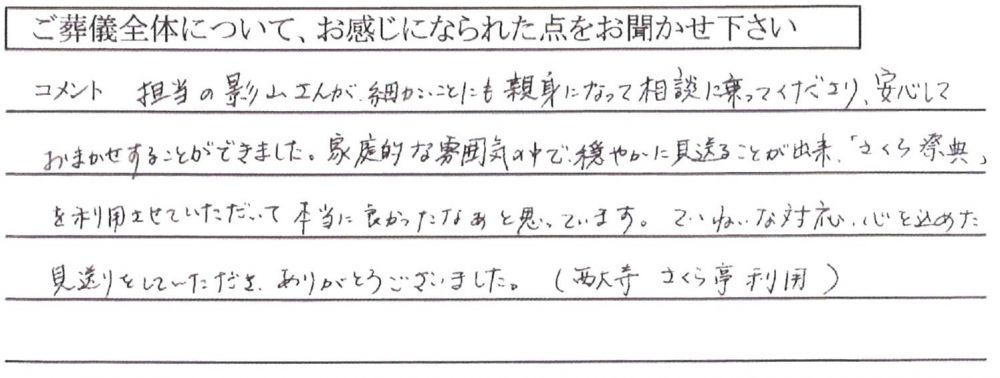 ご葬儀全体について、お感じになられた点をお聞かせ下さい
コメント 担当の影山さんが、細かいことにも親身になって相談に乗ってくださり、安心して
おまかせすることができました。家庭的な雰囲気の中で、穏やかに見送ることが出来、「さくら祭典」
を利用させていただいて本当に良かったなあと思っています。ていねいな対応、心を込めた
見送りをしていただき、ありがとうございました。(西大寺 さくら亭利用)